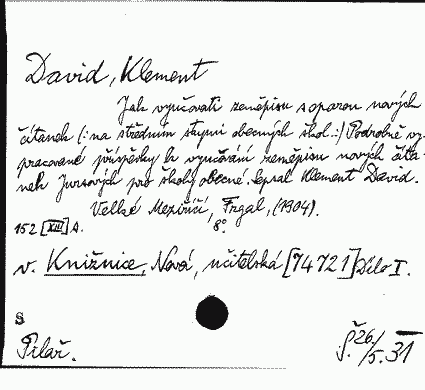 David, Klement
Jak vyučovati zeměpisu s oporou nových
čítanek (: na středním stupni obecných škol :) Podrobně vy-
pracované příspěvky k vyučování zeměpisu nových číta-
nek Jursových pro školy obecné. Sepsal Klement David.
Velké Meziříčí, Frgal, (1904).
152 [XIII] s. 8°.
v. Knižnice, Nová, učitelská [74721] Dílo I.
S
Pilař.
26/5. 31